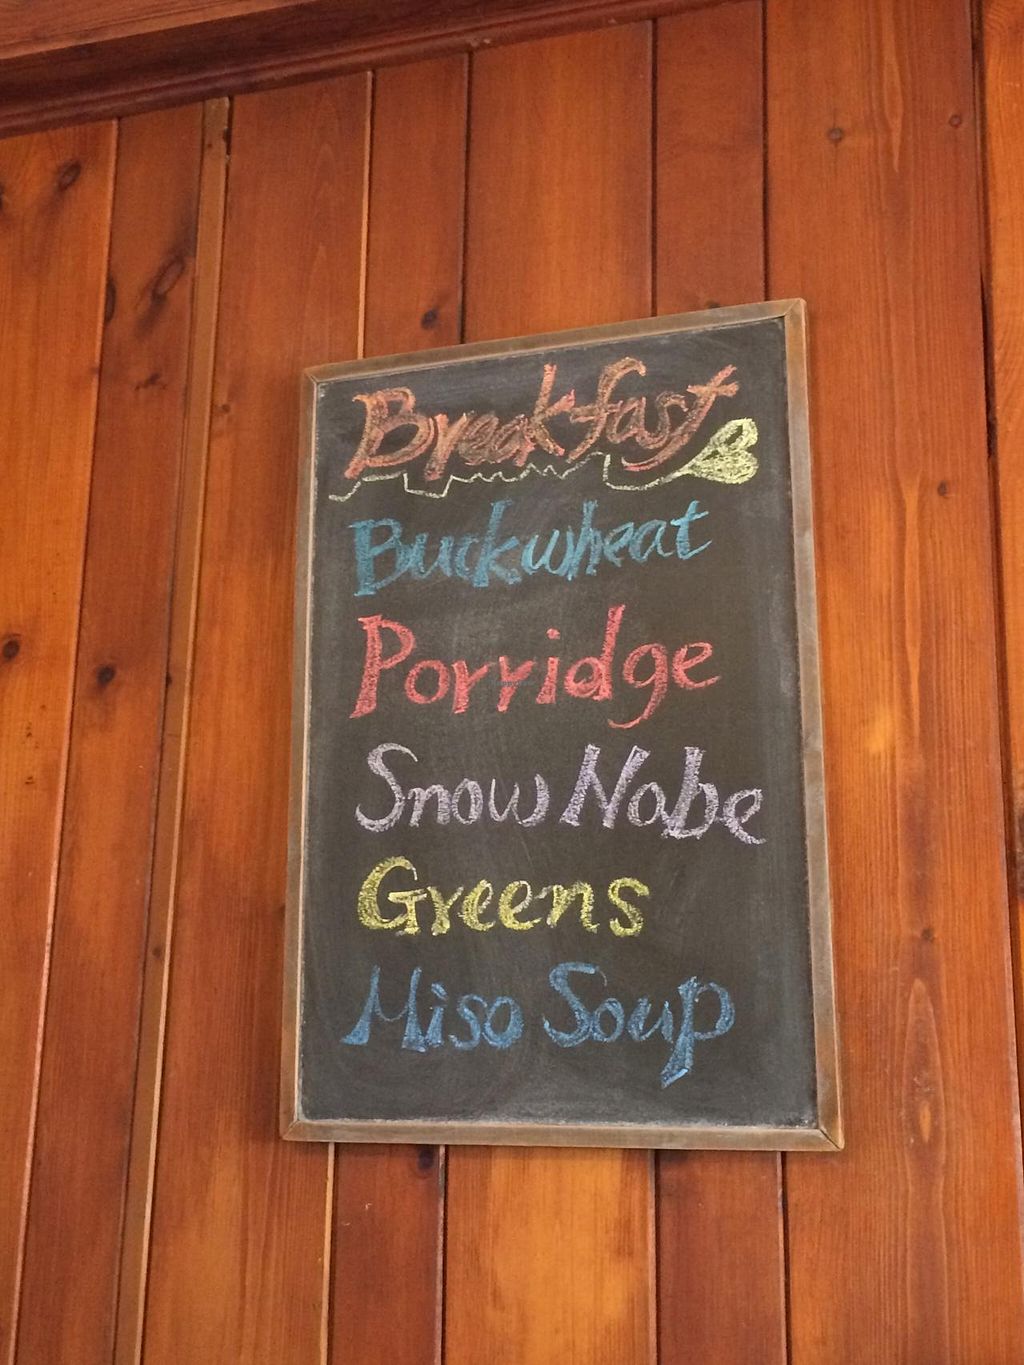 Breakfast
Buckwheat
Porridge
Snow Nabe
Greens
Miso Soup